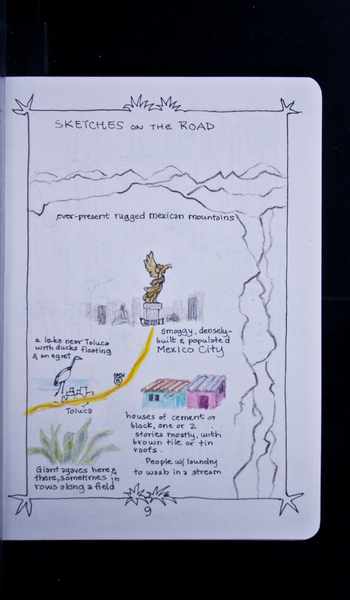 SKETCHES ON THE ROAD
ever-present rugged mexican mountains
smoggy, densely-
built & populated
Mexico City
a lake near Toluca
with ducks floating
& an egret
Toluca
houses of cement or
block, one or 2
stories mostly, with
brown tile or tin
roofs.
People w/ laundry
to wash in a stream
Giant agaves here &
there, sometimes in
rows along a field
9